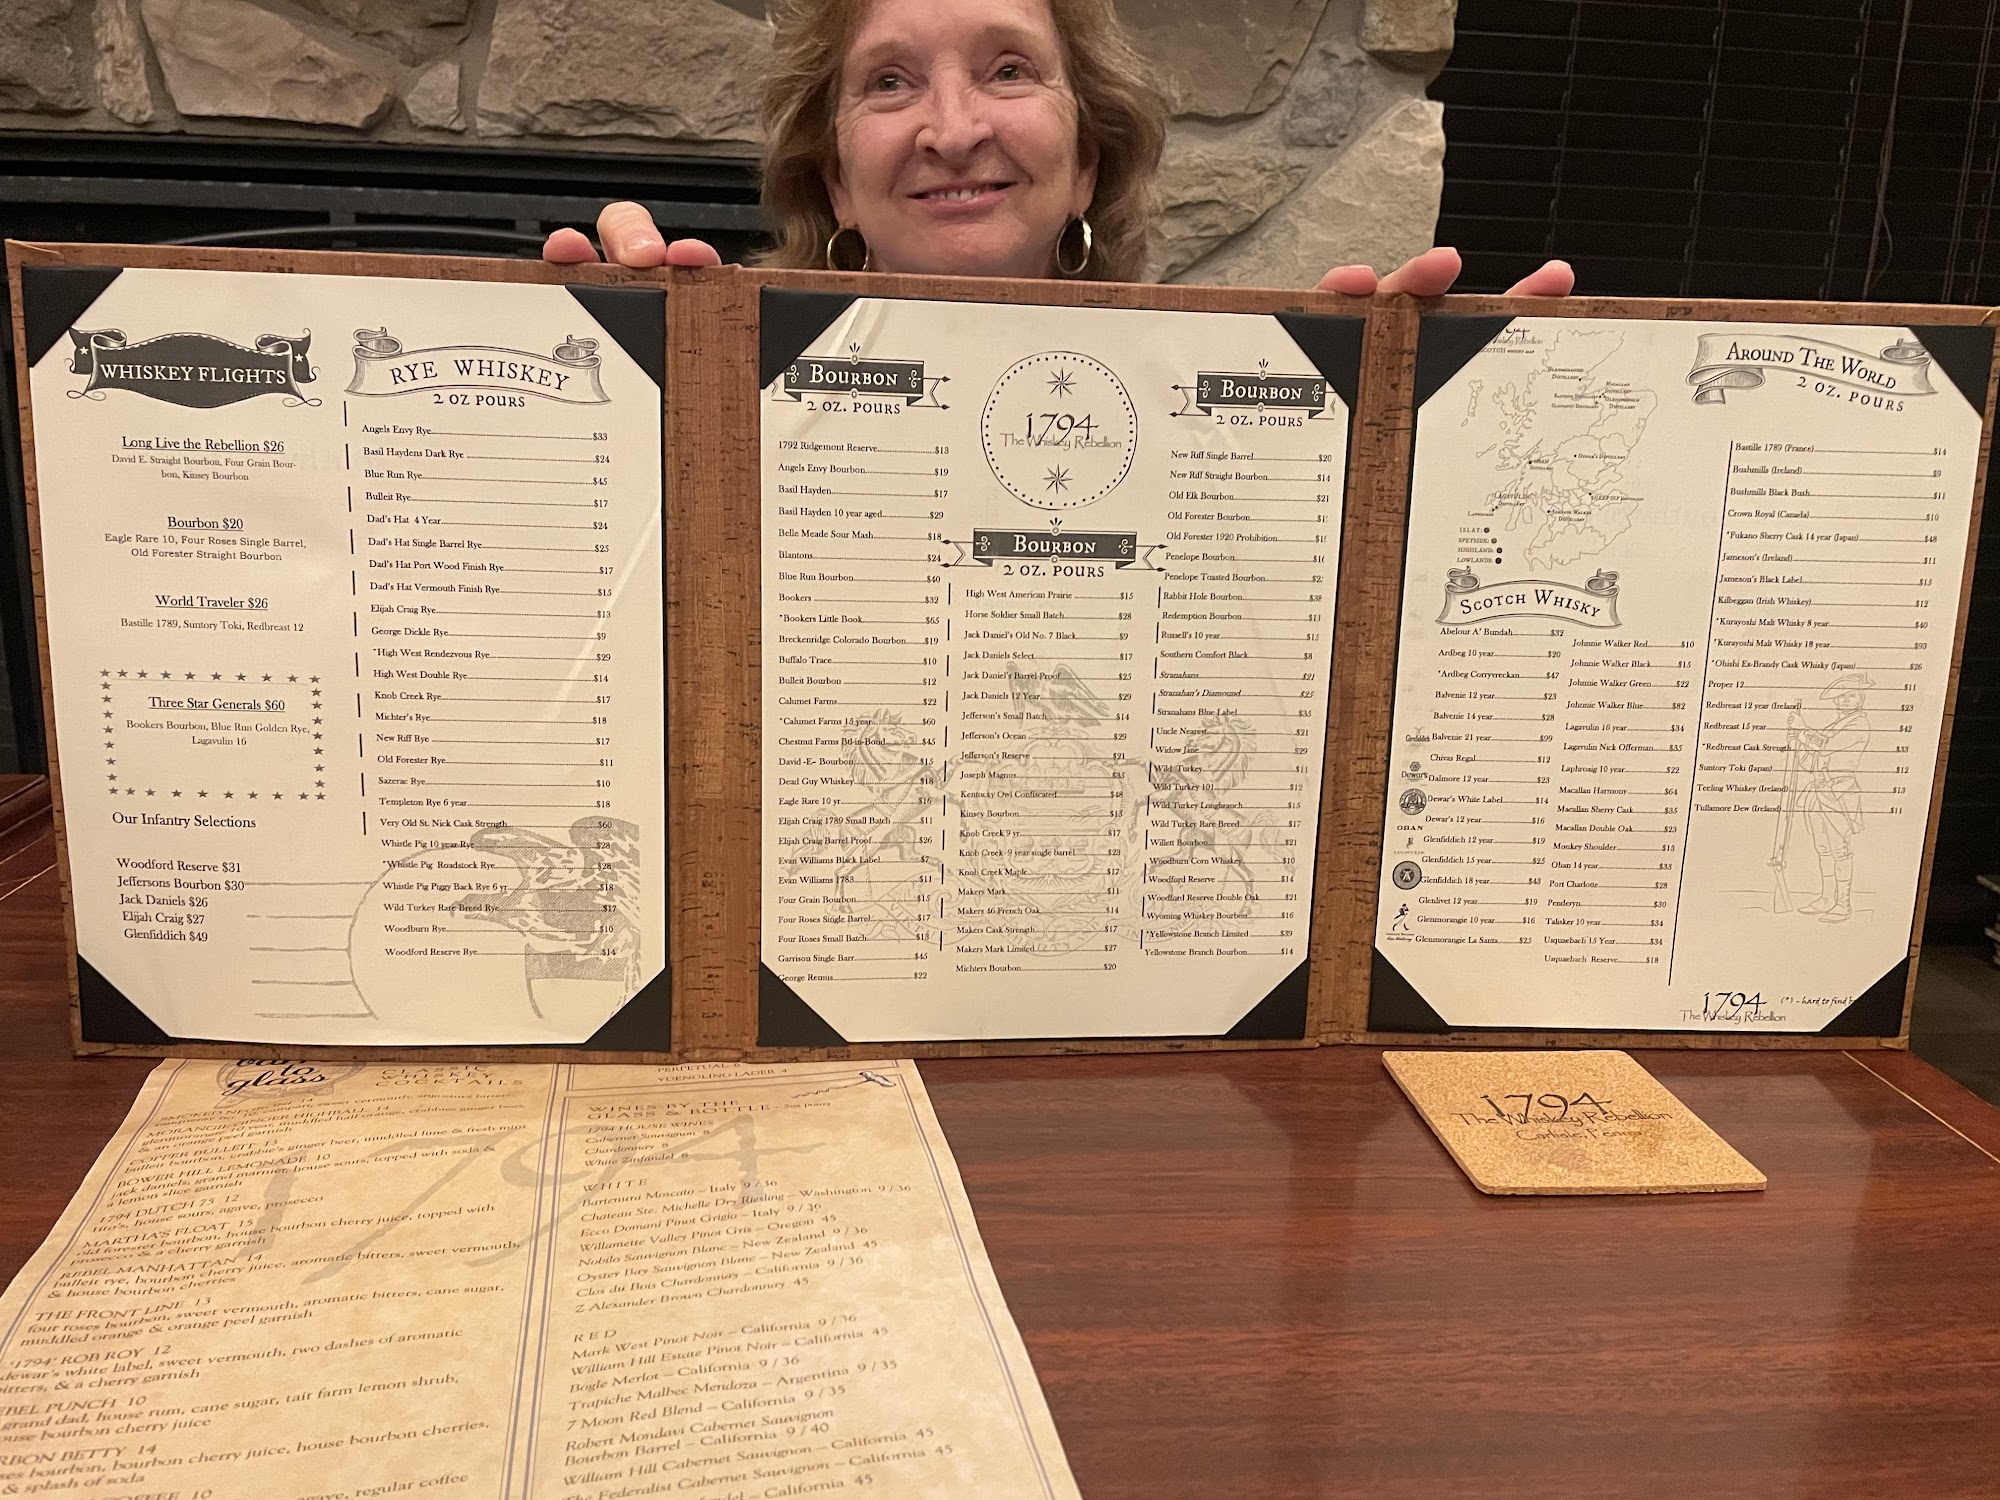 WHISKEY FLIGHTS
Long Live the Rebellion $26
David E. Straight Bourbon, Four Grain Bour-
bon, Kinsey Bourbon
Bourbon $20
Eagle Rare 10, Four Roses Single Barrel,
Old Forester Straight Bourbon
World Traveler $26
Bastille 1789, Suntory Toki, Redbreast 12
Three Star Generals $60
Bookers Bourbon, Blue Run Golden Rye,
Lagavulin 16
Our Infantry Selections
Woodford Reserve $31
Jeffersons Bourbon $30
Jack Daniels $26
Elijah Craig $27
Glenfiddich $49
RYE WHISKEY
2 OZ POURS
Angels Envy Rye $33
Basil Haydens Dark Rye $24
Blue Run Rye $45
Bulleit Rye $17
Dad's Hat 4 Year $24
Dad's Hat Single Barrel Rye $25
Dad's Hat Port Wood Finish Rye $17
Dad's Hat Vermouth Finish Rye $15
Elijah Craig Rye $13
George Dickle Rye $9
*High West Rendezvous Rye $29
High West Double Rye $14
Knob Creek Rye $17
Michter's Rye $18
New Riff Rye $17
Old Forester Rye $11
Sazerac Rye $10
Templeton Rye 6 year $18
Very Old St. Nick Cask Strength $60
Whistle Pig 10 year Rye $28
*Whistle Pig Roadstock Rye $28
Whistle Pig Piggy Back Rye 6 yr $18
Wild Turkey Rare Breed Rye $17
Woodburn Rye $10
Woodford Reserve Rye $14
BOURBON
2 OZ. POURS
1792 Ridgemont Reserve $13
Angels Envy Bourbon $19
Basil Hayden $17
Basil Hayden 10 year aged $29
Belle Meade Sour Mash $18
Blantons $24
Blue Run Bourbon $40
Bookers $32
*Bookers Little Book $65
Breckenridge Colorado Bourbon $19
Buffalo Trace $10
Bulleit Bourbon $12
Calumet Farms $22
*Calumet Farms 15 year $60
Chestnut Farms Btl-in-Bond $45
David -E- Bourbon $15
Dead Guy Whiskey $18
Eagle Rare 10 yr $16
Elijah Craig 1789 Small Batch $11
Elijah Craig Barrel Proof $26
Evan Williams Black Label $7
Evan Williams 1783 $11
Four Grain Bourbon $15
Four Roses Single Barrel $17
Four Roses Small Batch $13
Garrison Single Barr $45
George Remus $22
1794
The Whiskey Rebellion
BOURBON
2 OZ. POURS
High West American Prairie $15
Horse Soldier Small Batch $28
Jack Daniel's Old No. 7 Black $9
Jack Daniels Select $17
Jack Daniel's Barrel Proof $25
Jack Daniels 12 Year $29
Jefferson's Small Batch $14
Jefferson's Ocean $29
Jefferson's Reserve $21
Joseph Magnus $35
Kentucky Owl Confiscated $48
Kinsey Bourbon $15
Knob Creek 9 yr $17
Knob Creek 9 year single barrel $23
Knob Creek Maple $17
Makers Mark $11
Makers 46 French Oak $14
Makers Cask Strength $17
Makers Mark Limited $27
Michters Bourbon $20
BOURBON
2 OZ. POURS
New Riff Single Barrel $20
New Riff Straight Bourbon $14
Old Elk Bourbon $21
Old Forester Bourbon
Old Forester 1920 Prohibition
Penelope Bourbon
Penelope Toasted Bourbon
Rabbit Hole Bourbon $38
Redemption Bourbon $11
Russell's 10 year $15
Southern Comfort Black $8
Stranahans $21
Stranahan's Diamound $25
Stranahans Blue Label $35
Uncle Nearest $21
Widow Jane $29
Wild Turkey $11
Wild Turkey 101 $12
Wild Turkey Longbranch $15
Wild Turkey Rare Breed $17
Willett Bourbon $21
Woodburn Corn Whiskey $10
Woodford Reserve $14
Woodford Reserve Double Oak $21
Wyoming Whiskey Bourbon $16
*Yellowstone Branch Limited $39
Yellowstone Branch Bourbon $14
ISLAY:
SPEYSIDE:
HIGHLAND:
LOWLANDS:
SCOTCH WHISKY
Abelour A' Bundah $32
Ardbeg 10 year $20
*Ardbeg Corryvreckan $47
Balvenie 12 year $23
Balvenie 14 year $28
Balvenie 21 year $99
Chivas Regal $12
Dalmore 12 year $23
Dewar's White Label $14
Dewar's 12 year $16
Glenfiddich 12 year $19
Glenfiddich 15 year $25
Glenfiddich 18 year $43
Glenlivet 12 year $19
Glenmorangie 10 year $16
Glenmorangie La Santa $25
OBAN
Johnnie Walker Red $10
Johnnie Walker Black $15
Johnnie Walker Green $22
Johnnie Walker Blue $82
Lagavulin 16 year $34
Lagavulin Nick Offerman $35
Laphroaig 10 year $22
Macallan Harmony $64
Macallan Sherry Cask $35
Macallan Double Oak $23
Monkey Shoulder $13
Oban 14 year $33
Port Charlotte $28
Penderyn $30
Talisker 10 year $34
Usquaebach 15 Year $34
Usquaebach Reserve $18
AROUND THE WORLD
2 OZ. POURS
Bastille 1789 (France) $14
Bushmills (Ireland) $9
Bushmills Black Bush $11
Crown Royal (Canada) $10
*Fukano Sherry Cask 14 year (Japan) $48
Jameson's (Ireland) $11
Jameson's Black Label $15
Kilbeggan (Irish Whiskey) $12
*Kurayoshi Malt Whisky 8 year $40
*Kurayoshi Malt Whisky 18 year $93
*Ohishi Ex-Brandy Cask Whisky (Japan) $26
Proper 12 $11
Redbreast 12 year (Ireland) $23
Redbreast 15 year $42
*Redbreast Cask Strength $33
Suntory Toki (Japan) $12
Teeling Whiskey (Ireland) $13
Tullamore Dew (Ireland) $11
1794
The Whiskey Rebellion
(*) - hard to find
1794
The Whiskey Rebellion
Carlisle, Penna
glass
CLASSIC
WHISKEY
COCKTAILS
MORANGIE GINGER HIGHBALL 14
glenmorangie 10 year, muddled half orange, crabbies ginger beer,
& an orange peel garnish
COPPER BULLETT 13
bulleit bourbon, crabbie's ginger beer, muddled lime & fresh mint
BOWER HILL LEMONADE 10
jack daniels, grand marnier, house sours, topped with soda &
a lemon slice garnish
1794 DUTCH 75 12
tito's, house sours, agave, prosecco
MARTHA'S FLOAT 15
old forester bourbon, house bourbon cherry juice, topped with
prosecco & a cherry garnish
REBEL MANHATTAN 14
bulleit rye, bourbon cherry juice, aromatic bitters, sweet vermouth,
& house bourbon cherries
THE FRONT LINE 13
four roses bourbon, sweet vermouth, aromatic bitters, cane sugar,
muddled orange & orange peel garnish
'1794' ROB ROY 12
dewar's white label, sweet vermouth, two dashes of aromatic
bitters, & a cherry garnish
PUNCH 10
grand dad, house rum, cane sugar, tait farm lemon shrub,
bourbon cherry juice
BETTY 14
bourbon, bourbon cherry juice, house bourbon cherries,
& splash of soda
COFFEE 10
regular coffee
PERPETUAL 6
YUENGLING LAGER 4
WINES BY THE
GLASS & BOTTLE - 5oz pours
1794 HOUSE WINES
Cabernet Sauvignon 8
Chardonnay 8
White Zinfandel 8
WHITE
Bartenura Moscato – Italy 9 / 36
Chateau Ste. Michelle Dry Riesling – Washington 9 / 36
Ecco Domani Pinot Grigio – Italy 9 / 36
Willamette Valley Pinot Gris – Oregon 45
Nobilo Sauvignon Blanc – New Zealand 9 / 36
Oyster Bay Sauvignon Blanc – New Zealand 45
Clos du Bois Chardonnay – California 9 / 36
Z Alexander Brown Chardonnay 45
RED
Mark West Pinot Noir – California 9 / 36
William Hill Estate Pinot Noir – California 45
Bogle Merlot – California 9 / 36
Trapiche Malbec Mendoza – Argentina 9 / 35
7 Moon Red Blend – California 9 / 35
Robert Mondavi Cabernet Sauvignon
Bourbon Barrel – California 9 / 40
William Hill Cabernet Sauvignon – California 45
The Federalist Cabernet Sauvignon – California 45
California 45